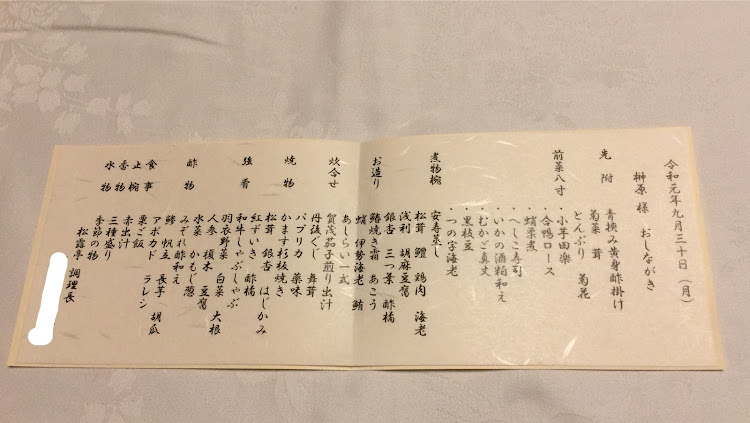 令和元年九月三十日（月）
榊原様 おしながき
先附 青掻み黄身酢掛け
菊菜 茸 菊花
とんぶり
前菜八寸 ・小芋田楽
・合鴨ロース
・蛸柔煮
・へしこ寿司
・いかの酒粕和え
・むかご真丈
・黒枝豆
・つの字海老
煮物椀 安寿蒸し
松茸 鱧 鶏肉 海老
浅利 胡麻豆腐
銀杏 三つ葉 酢橘
お造り 鰆焼き霜 あこう
蛸 伊勢海老 鮪
あしらい一式
炊合せ 賀茂茄子煎り出汁
丹後ぐじ 舞茸
パプリカ 薬味
焼物 かます杉板焼き
松茸 銀杏 はじかみ
紅ずいき 酢橘
強肴 和牛しゃぶしゃぶ
羽衣野菜 白菜 大根
人参 榎木 豆腐
水菜 かもじ葱
酢物 みぞれ酢和え
鯵 帆立 長芋 胡瓜
アボカド ラレシ
食事 栗ご飯
止椀 赤出汁
香物 三種盛り
水物 季節の物
松露亭 調理長